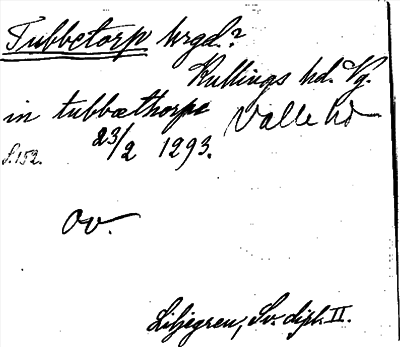 Tubbetorp hrgd.?
Kullings hd. Vg.
in tubbæthorpe Valle hd
s. 152. 23/2 1293.
ov.
Liljegren, Sv. dipl. II.